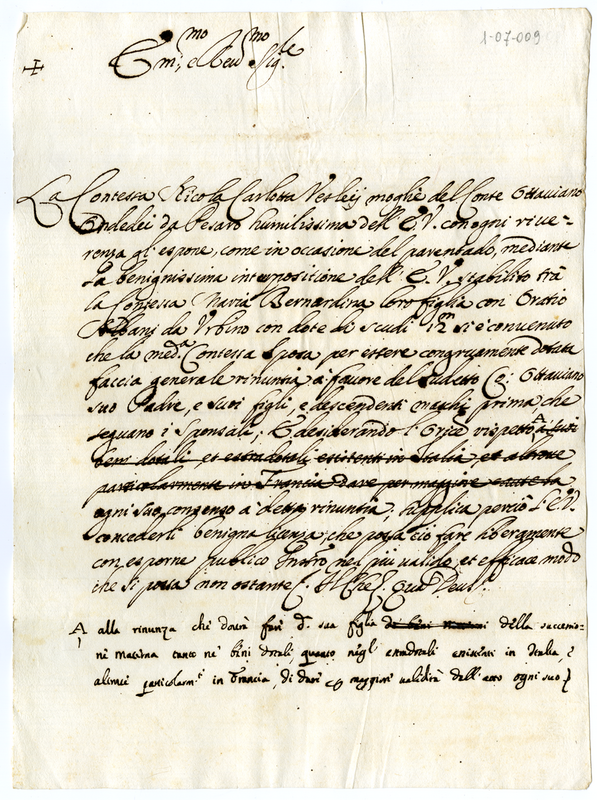 1-07-009
Em.mo e Reu.mo Sig.re
La Contessa Nicola Carlotta Vesleij moglie del Conte Ottauiano
Ondedei da Pesaro humilissima dell' E.V. con ogni riue=
renza gl'espone, come in occasione del parentado, mediante
la benignissima interpositione dell' E. V. stabilito trà
la Contessa Maria Bernardina loro figlia con Oratio
Albani da Vrbino con dote di scudi 12m si è conuenuto
che la med.a Contessa Sposa, per essere congruamente dotata
faccia generale rinuntia à fauore del sudetto Co: Ottauiano
suo Padre, e suoi figli, e descendenti maschi prima che
seguano i sponsali; E desiderando l'Or.ice rispetto A à suoi
beni dotali, et estradotali esistenti in Italia, et altroue
particolarmente in Francia dare per maggiore cautela
ogni suo consenso à detta rinuntia, supplica perciò l'E.V.
concederli benigna licenza, che possa ciò fare liberamente
con esporne publico Instro. nel più ualido, et efficace modo
che si possa non ostante &. Il che &. Qua Deus &.
A alla rinunza che dourà fare d.a sua figlia de beni materni della successio-
ne materna tanto ne' beni dotali, quanto negl'estradotali esistenti in Italia, e
altroue particolarm.te in Francia, di dare p maggior ualidità dell'atto ogni suo }